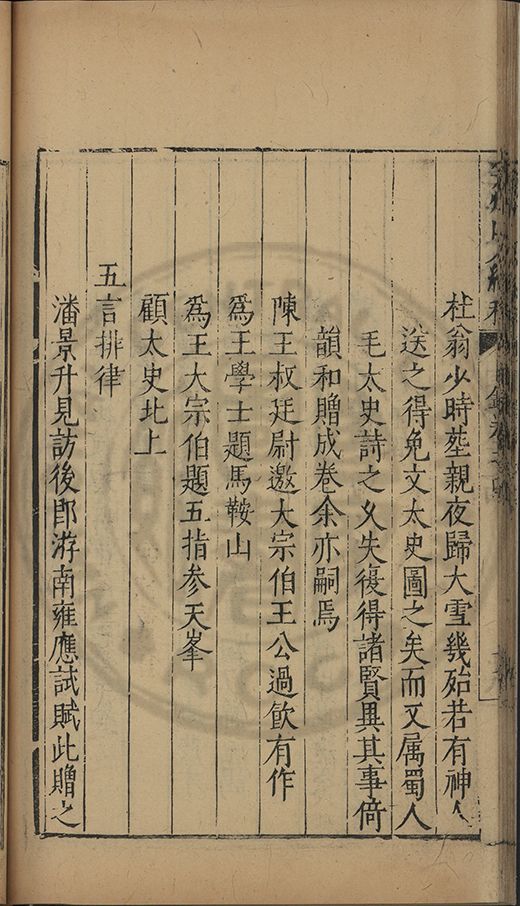 杜翁少時塟親夜歸大雪幾殆若有神人
送之得免文太史圖之矣而又属蜀人
毛太史詩之乆失復得諸賢異其事倚
韻和贈成卷余亦嗣焉
陳王叔廷尉邀大宗伯王公過飲有作
爲王學士題馬鞍山
爲王大宗伯題五指参天峯
顧太史北上
五言排律
潘景升見訪後即游南雍應試賦此贈之